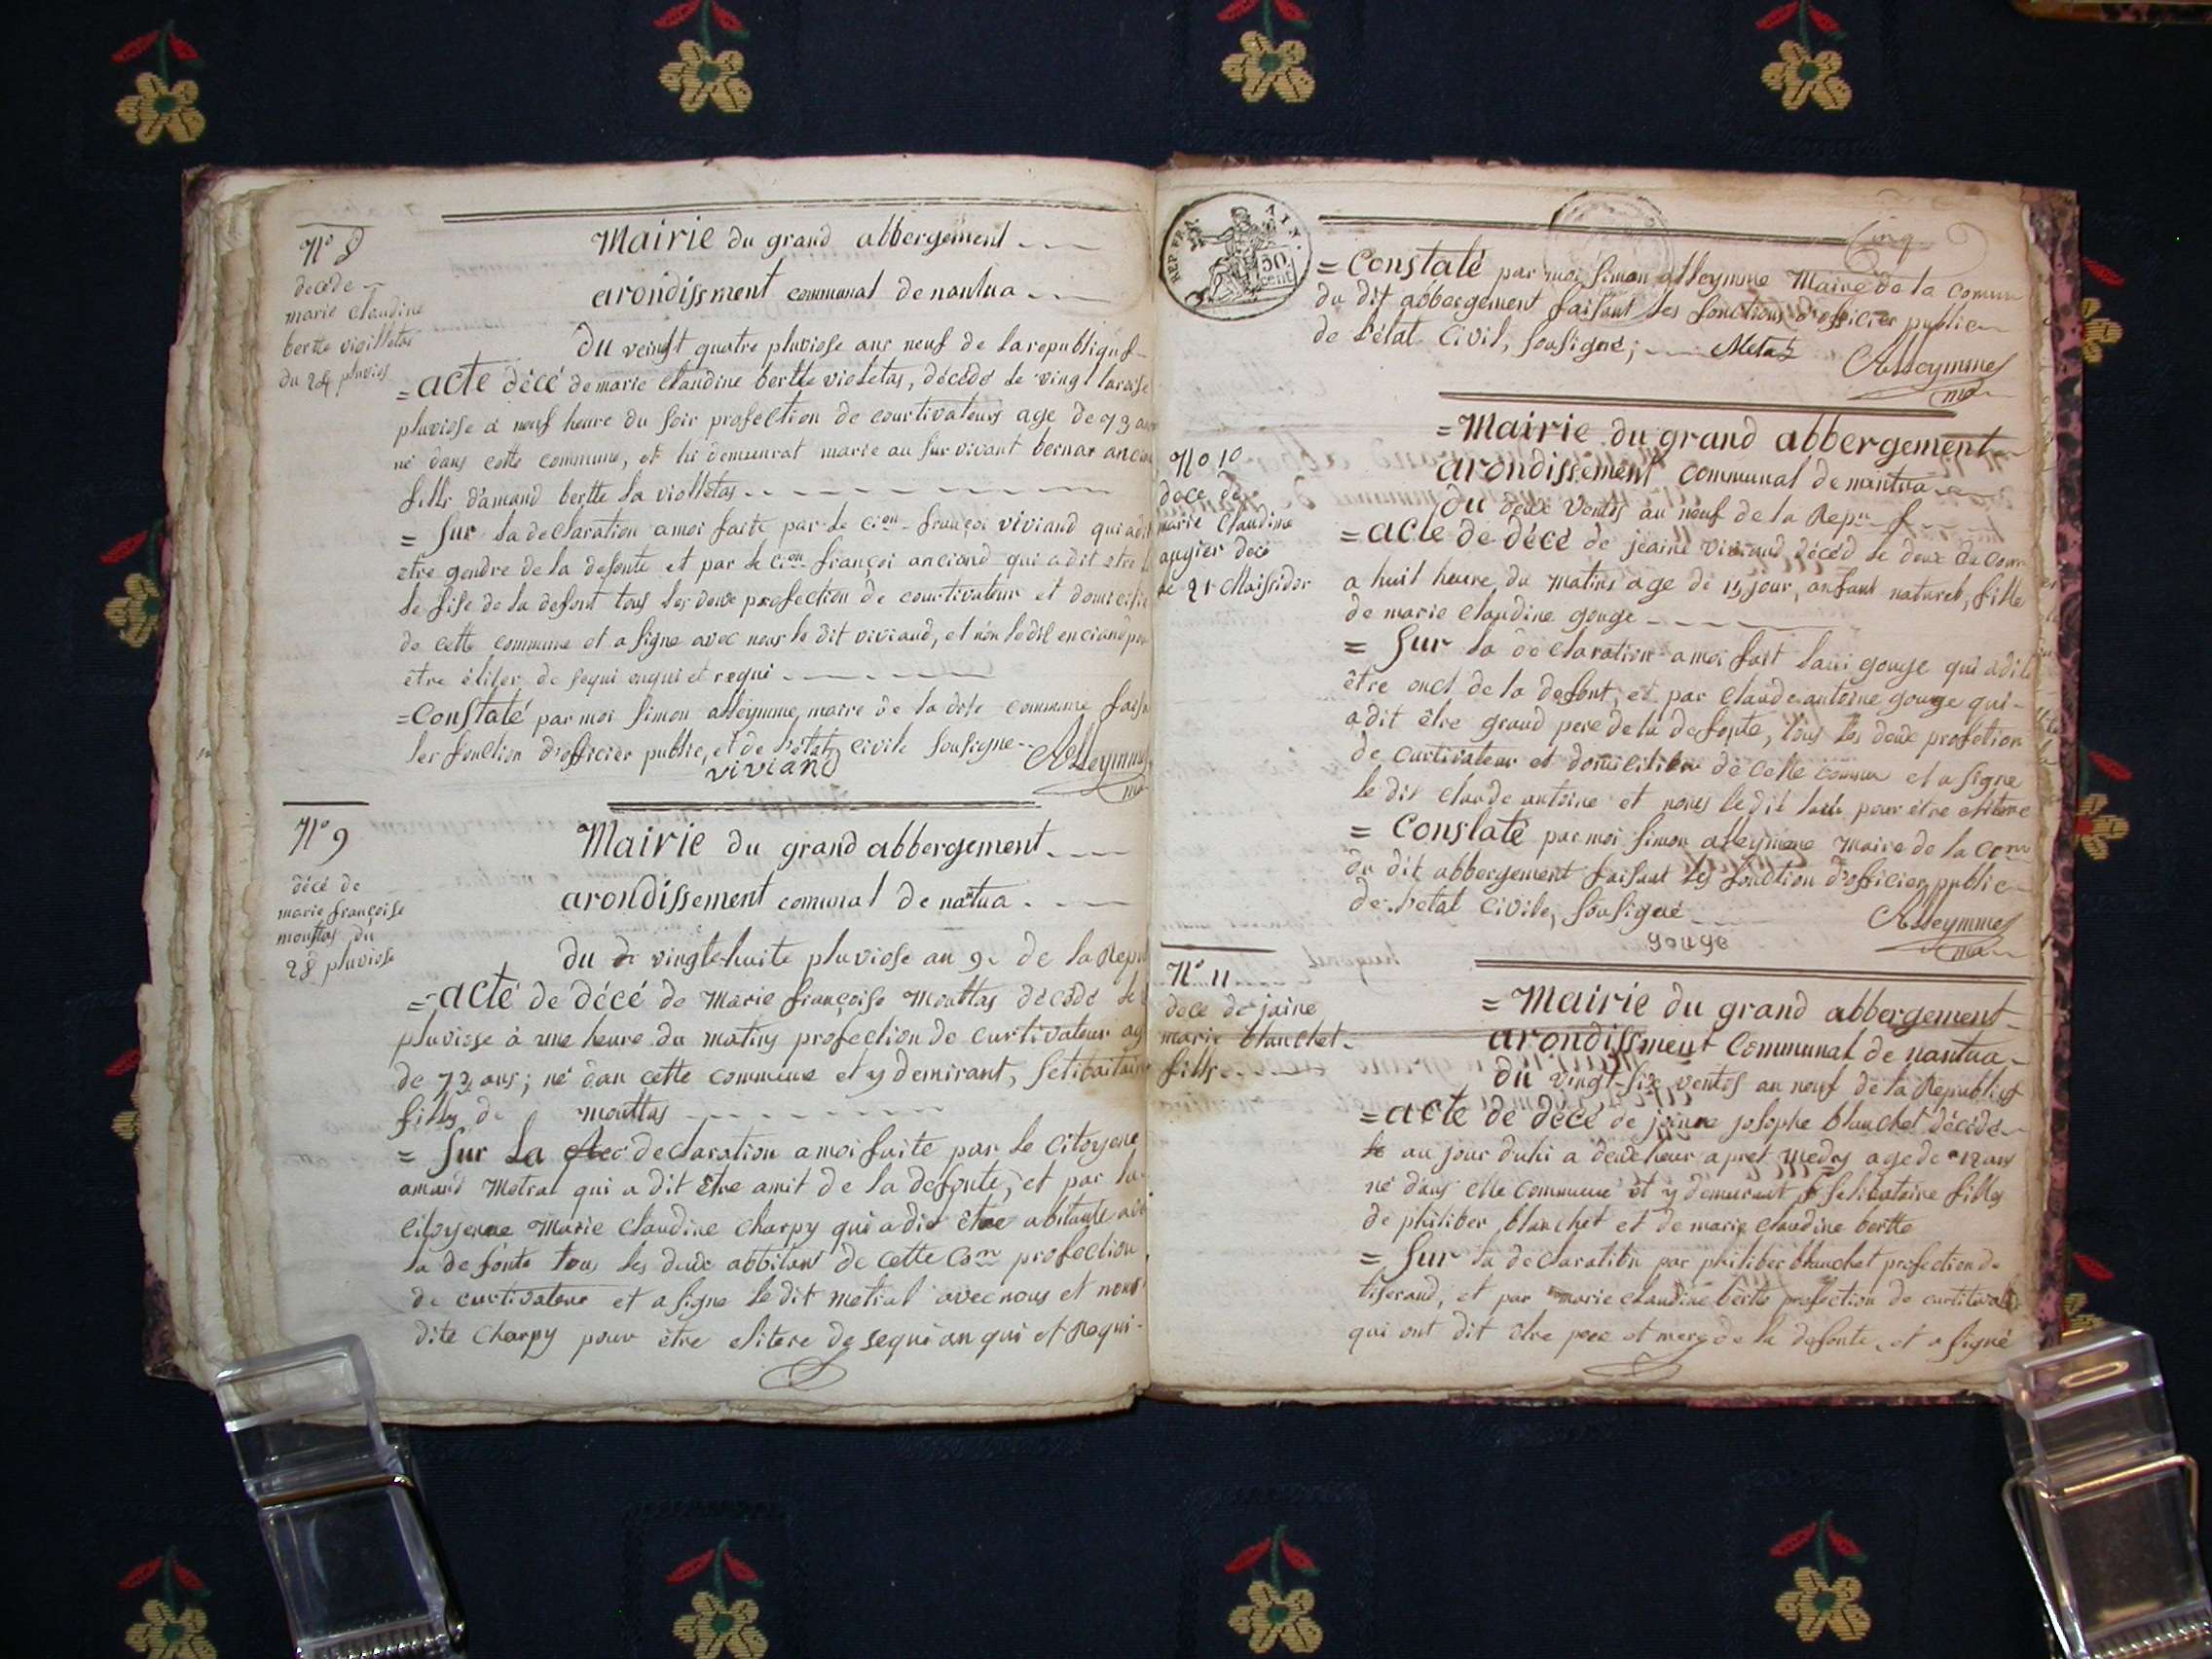 N° 8
decde
marie claudine
bertte violletas
du 24 pluvios
Mairie du grand abbergement
arondissment communal de nantua
Du veingt quatre pluviose anr neuf de la republique
= acte décé de marie claudine bertte violetas, décédé le vingt
pluviose a neuf heure du soir profection de courtivateurs age de 73
né dans cette commune, et lui demeurat marie au survivant bernar
fills d'amand bertte la viollètas
= Sur la declaration amoi faite par le cion françoi viviand qui a dit
etre gendre de la defonte et par le cion françoi anciand qui a dit etre
le fise de la defont tous les deux profection de courtivateur et domicilié
de cette commune et a signe avec nous le dit viviand, et non le dit enciand
être éliter de sequi enqui et requi
= Constaté par moi Simon alleymme, maire de la dite commune
les fonction d'officier public, et de l'etat civile sousigne
viviand
Alleymme
ma
N° 9
décé de
marie françoise
mouttas du
28 pluviose
Mairie du grand abbergement
arondissement comunal de nantua
du vingt-huite pluviose an 9e de la Repu
= acté de décé de Marie françoise Mouttas décédé le
pluviose à une heure du matins profection de curtivateur
de 73 ans; né dan cette commeune et y demirant,
fills de mouttas
= Sur La declaration a moi faite par le citoyene
amand Metral qui a dit être amit de la defonte, et par la
citoyenne Marie claudine Charpy qui a dit être abitante
la defonte tous les deux abbitan de cette Com profection
de curtivateur et a signe le dit metral avec nous et nons
dite Charpy pour être elitere de sequi an qui et Requi
REP. FRA.
50
cent
Cinq
= Constaté par moi Simon alleymme Maire de la comun
du dit abbergement faisant les fonctions d'officier public
de l'état Civil, sousigné; Metral
Alleymme
ma
N° 10
dece de
marie claudine
augier décé
le 21 Messidor
= Mairie du grand abbergement
arondissement communal de nantua
du deux Ventos an neuf de la Repu
= acte de décé de jeaine viviand décéd le deux du cour
a huit heure du matins age de 15 jour, anfant naturel, fille
de marie claudine gouge
= Sur la déclaration a moi fait gouge qui a dit
être oncl de la defont, et par Claude antoine gouge qui
a dit être grand pere de la defonte, tous les deux profetion
de curtivateur et domicilier de cette comun et a signe
le dit claude antoine et nons le dit pour être elitere
= Constaté par moi Simon alleymme Maire de la Com
du dit abbergement faisant les fonction d'officier public
de l'etat Civile, sousigné
gouge
Alleymme
ma
N° 11
dece de jaine
marie blanchet
fills
= Mairie du grand abbergement
arondissment Communal de nantua
du vingt-six ventos an neuf de la Republiq
= acte de décé de jeanne josophe blanchet décédé
le au jour dului a deux heur apret medy age de 12 ans
né dans cette commune et y demeurant selibataire filles
de philiber blanchet et de marie claudine bertte
= Sur la declaration par philiber blanchet profection de
tiserand, et par marie claudine bertte profection de curtivateur
qui ont dit etre pere et mere de la defonte, et a signé